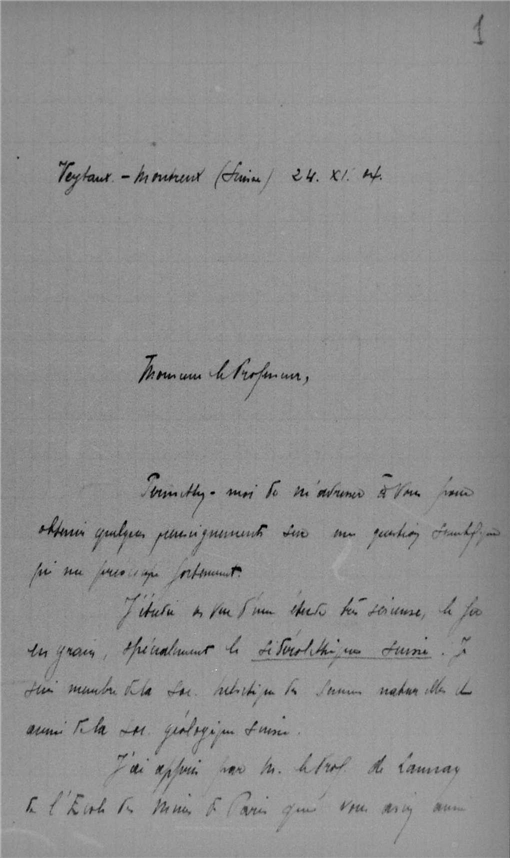 1
Veytaux - Montreux (Suisse) 24. XI. 04.
Monsieur le Professeur,
Permettez-moi de m'adresser à Vous pour
obtenir quelques renseignements sur une question scientifique
qui me préoccupe fortement.
J'étudie en vue d'une étude très sérieuse, le fer
en grains, spécialement le sidérolithique suisse. Je
suis membre de la Soc. helvétique des Sciences naturelles et
aussi de la Soc. géologique suisse.
J'ai appris par M. le Prof. de Launay
de l'Ecole des Mines de Paris que vous aviez